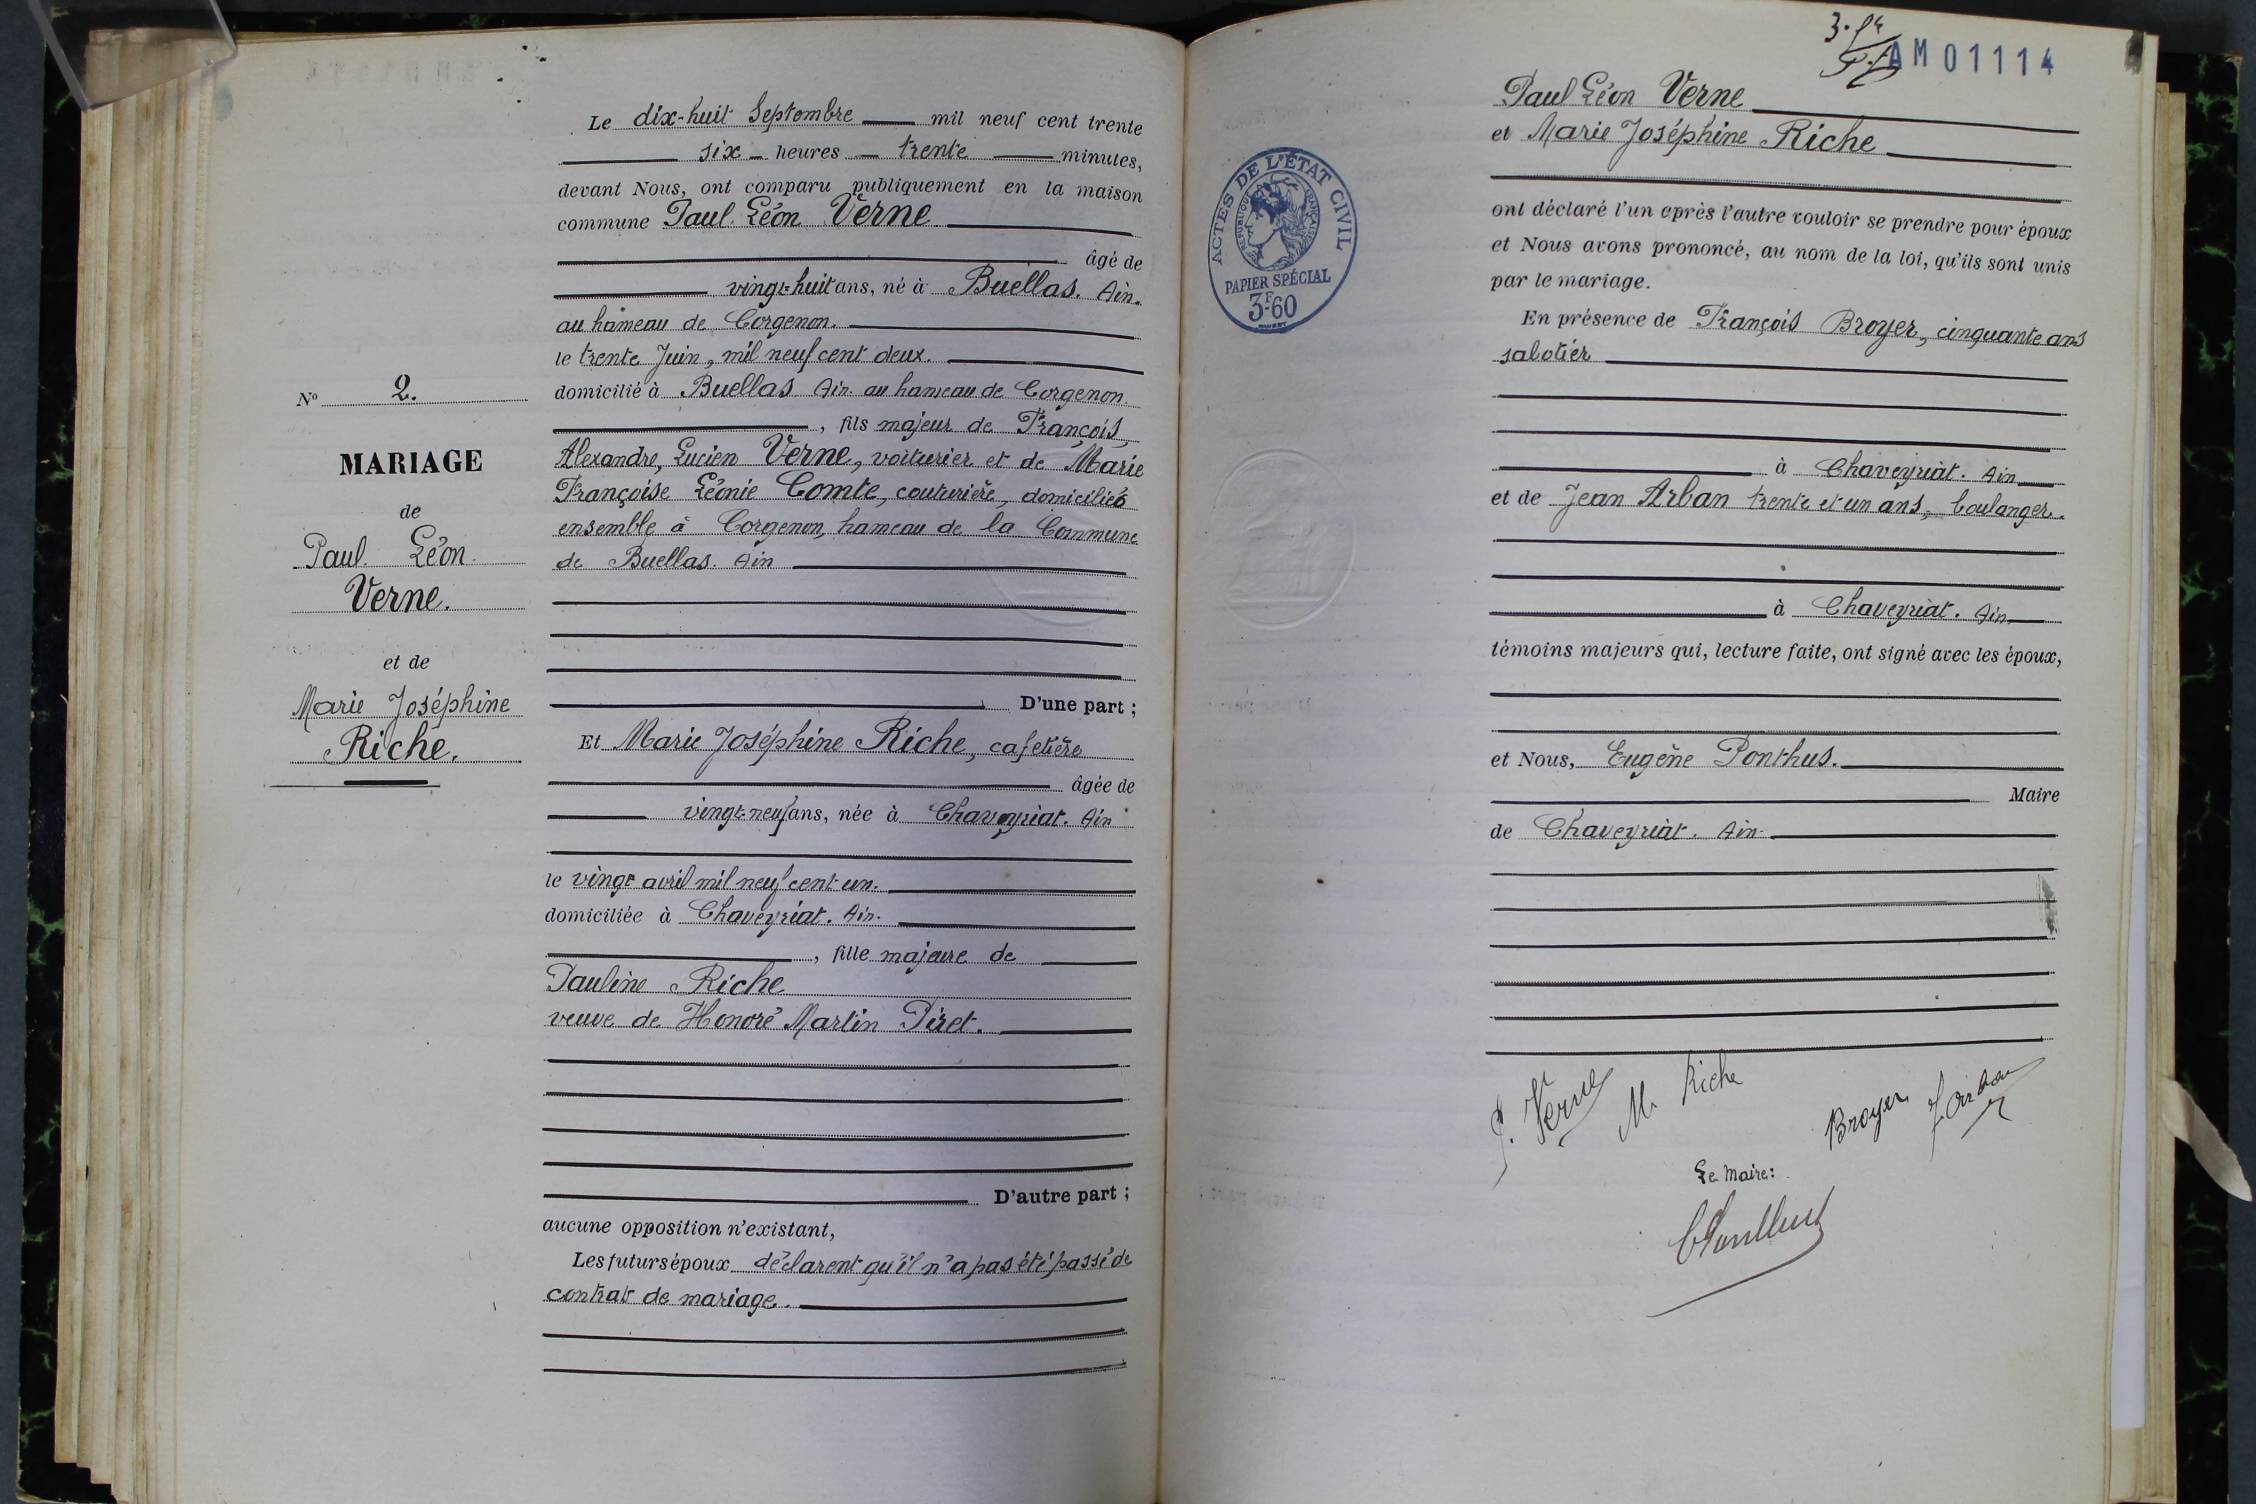 Le dix-huit Septembre mil neuf cent trente
six heures trente minutes,
devant Nous, ont comparu publiquement en la maison
commune Paul Léon Verne
âgé de
vingt-huit ans, né à Buellas. Ain.
au hameau de Corgenon.
le trente Juin, mil neuf cent deux.
domicilié à Buellas Ain au hameau de Corgenon.
, fils majeur de François,
Alexandre, Lucien Verne, voiturier et de Marie
Françoise Léonie Comte, couturière, domiciliés
ensemble à Corgenon, hameau de la Commune
de Buellas. Ain
D'une part ;
Et Marie Joséphine Riche, cafetière
âgée de
vingt-neuf ans, née à Chaveyriat. Ain
le vingt avril mil neuf cent un.
domiciliée à Chaveyriat. Ain.
, fille majeure de
Pauline Riche
veuve de Honoré Martin Piret.
D'autre part ;
aucune opposition n'existant,
Les futurs époux déclarent qu'il n'a pas été passé de
contrat de mariage.
No 2.
MARIAGE
de
Paul Léon
Verne.
et de
Marie Joséphine
Riche.
AM 01114
Paul Léon Verne
et Marie Joséphine Riche
ACTES DE L'ÉTAT CIVIL
RÉPUBLIQUE FRANÇAISE
PAPIER SPÉCIAL
3F60
ont déclaré l'un après l'autre vouloir se prendre pour époux
et Nous avons prononcé, au nom de la loi, qu'ils sont unis
par le mariage.
En présence de François Broyer, cinquante ans
sabotier
à Chaveyriat. Ain
et de Jean Arban trente et un ans, boulanger.
à Chaveyriat. Ain
témoins majeurs qui, lecture faite, ont signé avec les époux,
et Nous, Eugène Ponthus.
Maire
de Chaveyriat. Ain
P. Verne M. Riche Broyer J. Arban
Le Maire:
EPonthus